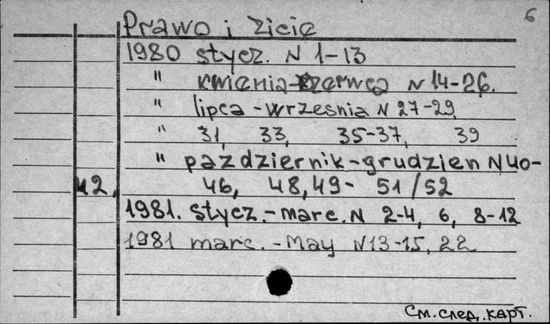 6
Prawo i Zicie
1980 stycz. N 1-13
" kwienia-czerwca N 14-26.
" lipca-wrzesnia N 27-29
" 31, 33, 35-37, 39
" październik-grudzien N 40-
42, 46, 48, 49- 51/52
1981. stycz.-marc. N 2-4, 6, 8-12
1981 marc.-May N 13-15, 22
См. след. карт.